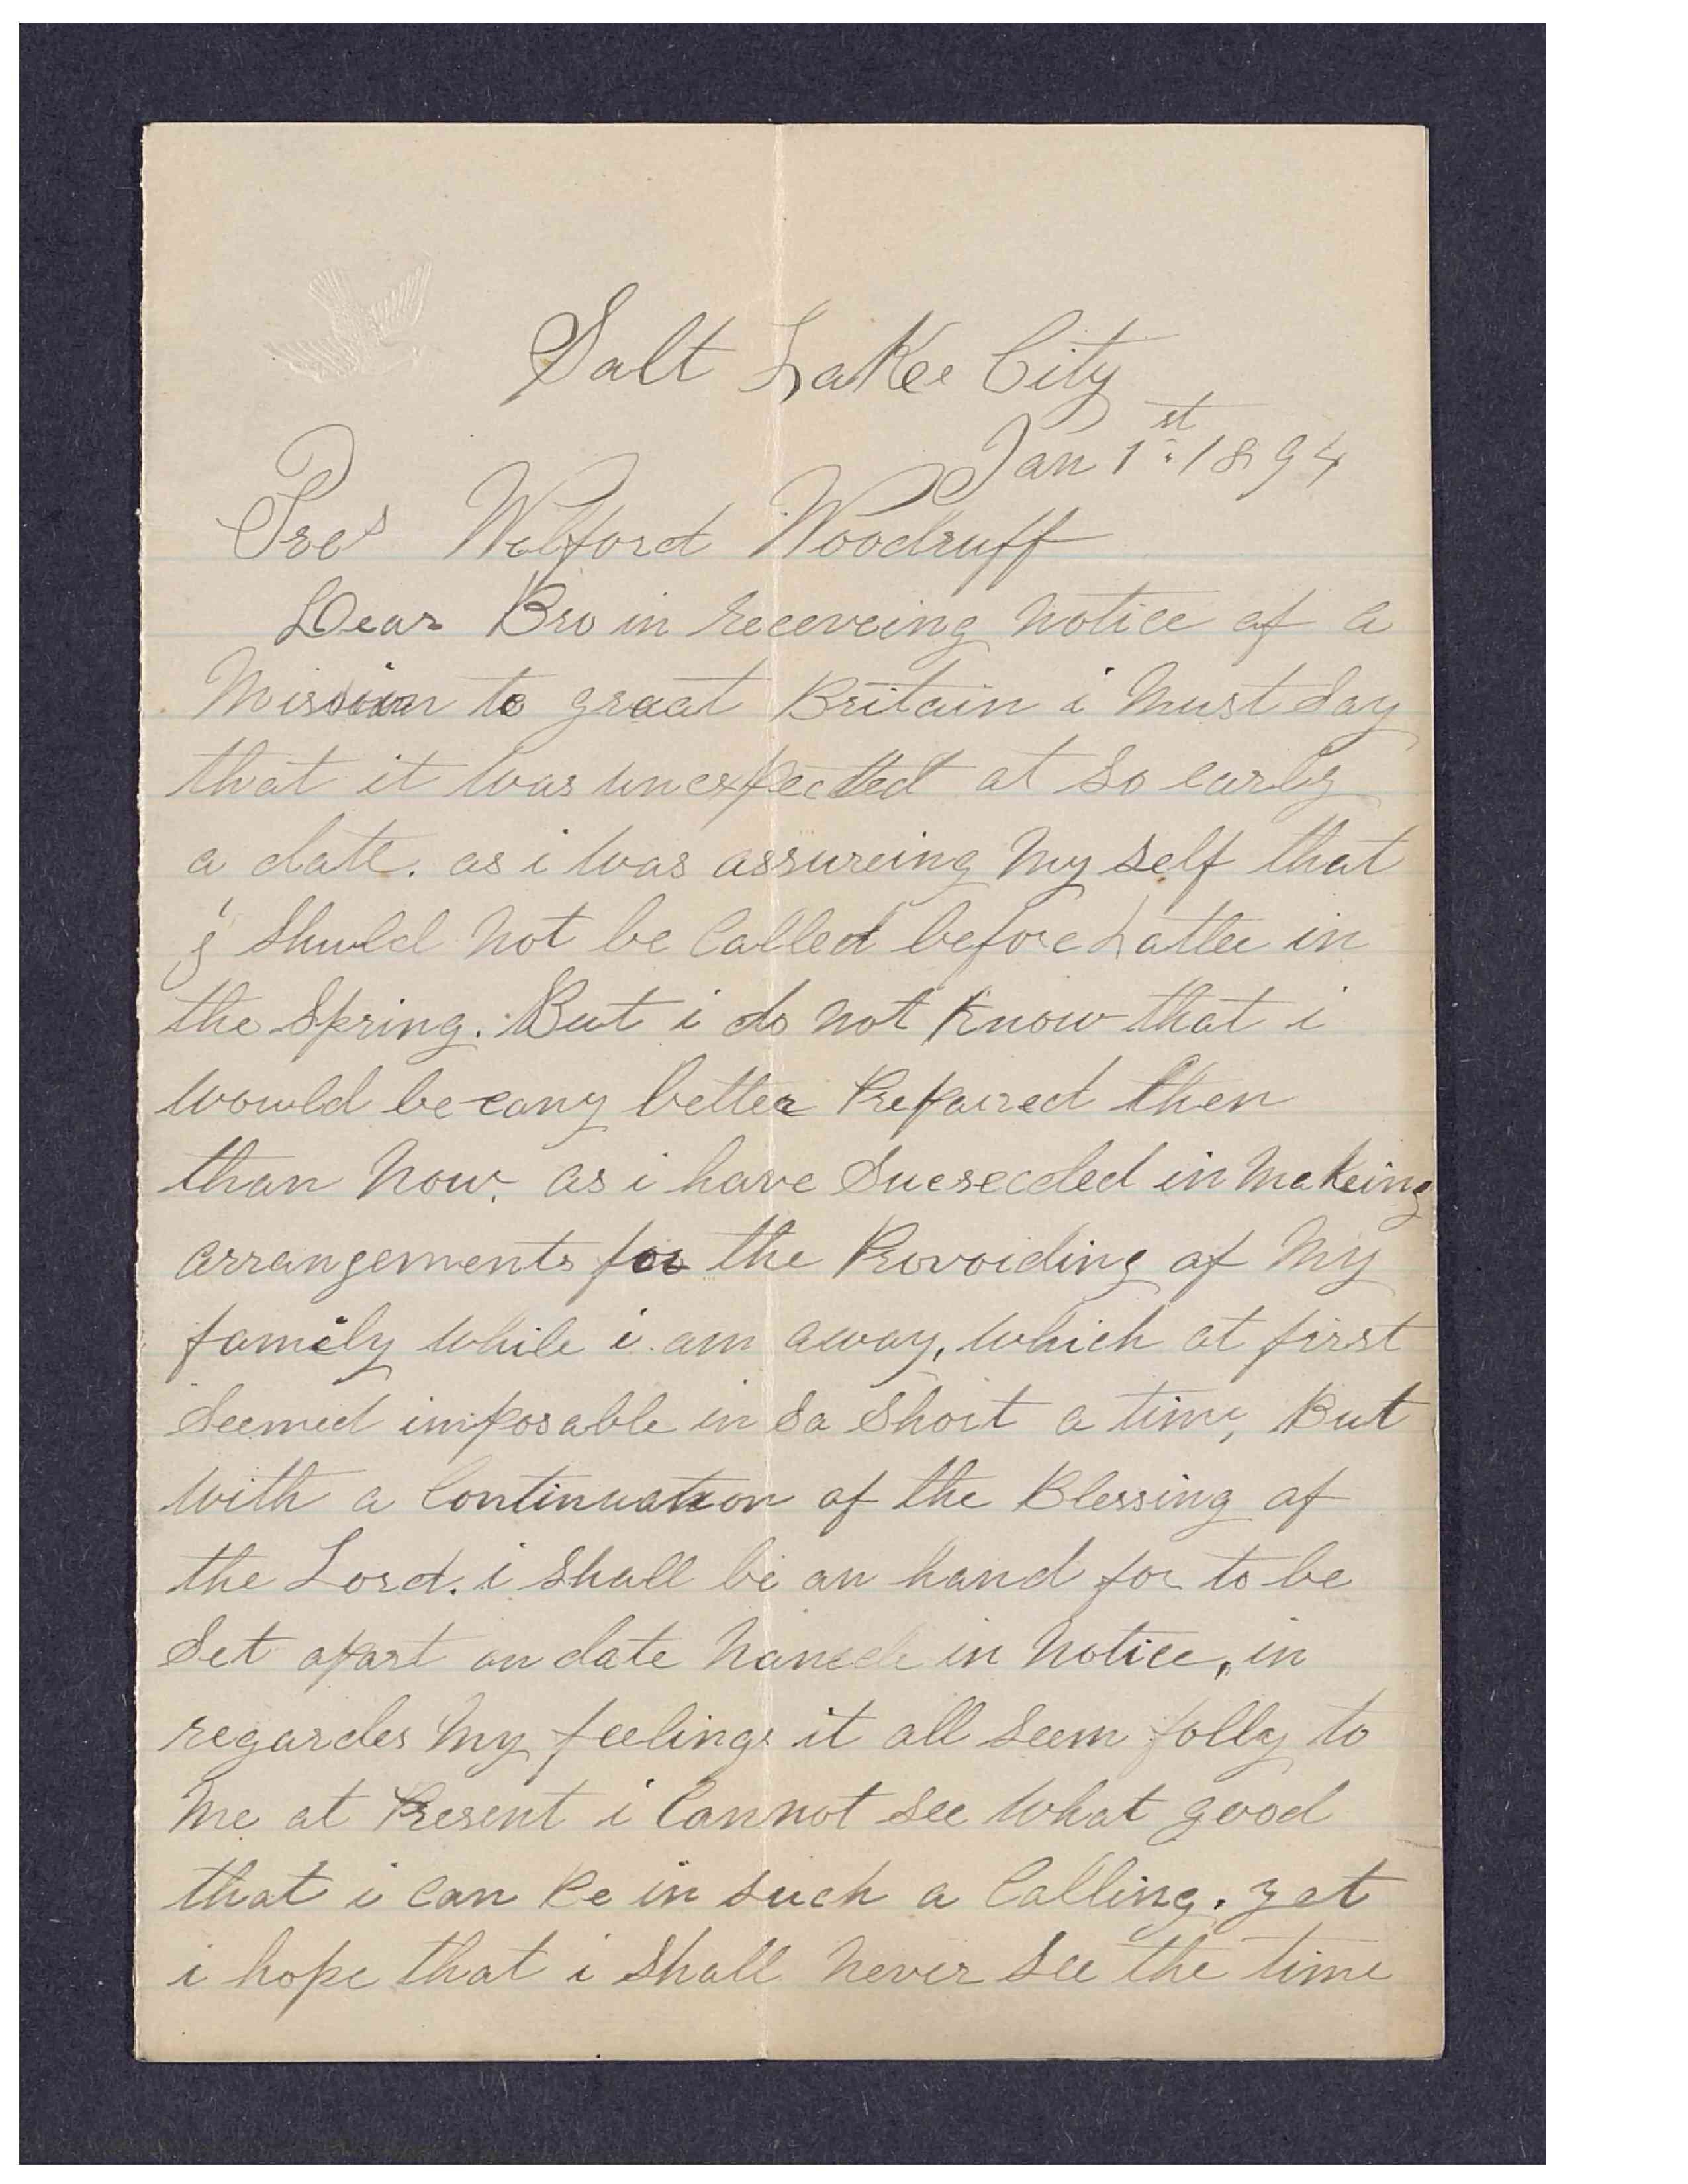 Salt Lake City
Jan 1st 1894
Pres Wilford Woodruff
Dear Bro in receveing notice of a
Mission to graat Britain i must say
that it was unexpected at so early
a date. as i was assureing my self that
i should not be Called before Latter in
the Spring. But i do not know that i
would be eany better Prepaired then
than now. as i have sucseeded in makeing
arrangements for the Provoiding of my
family while i am away, which at first
seemed imposable in so short a time, But
with a Continuation of the Blessing of
the Lord. i shall be on hand for to be
set apart on date named in notice, in
regardes my feelings it all seem folly to
me at Present i Cannot see what good
that i can be in such a Calling. yet
i hope that i shall never see the time